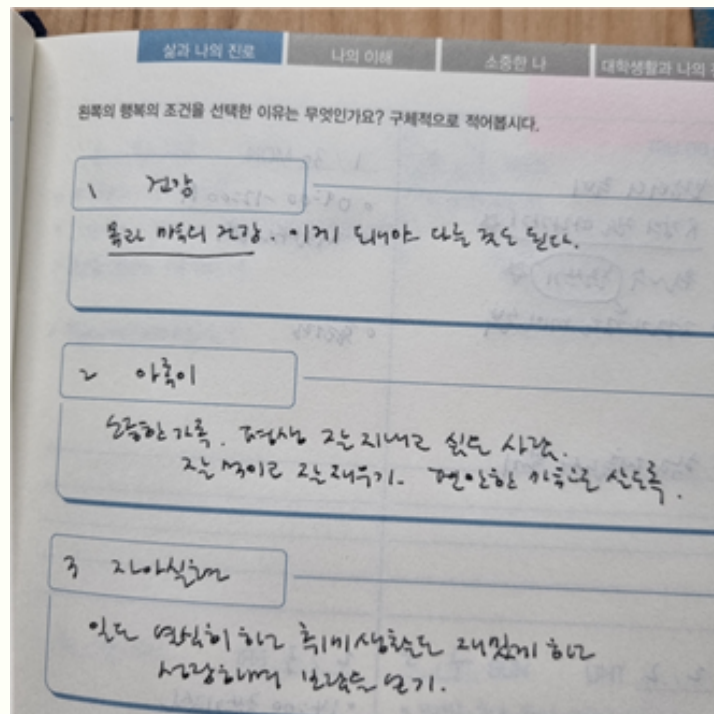 삶과 나의 진로
나의 이해
소중한 나
대학생활과 나의
왼쪽의 행복의 조건을 선택한 이유는 무엇인가요? 구체적으로 적어봅시다.
1 건강
몸과 마음의 건강. 이게 돼야 다른 것도 된다.
2 아록이
소중한 가족. 평생 잘 지내고 싶은 사람.
잘 먹이고 잘 재우기. 편안한 가족으로 살도록.
3 자아실현
일도 열심히 하고 취미생활도 재밌게 하고
성장하며 보람을 얻기.